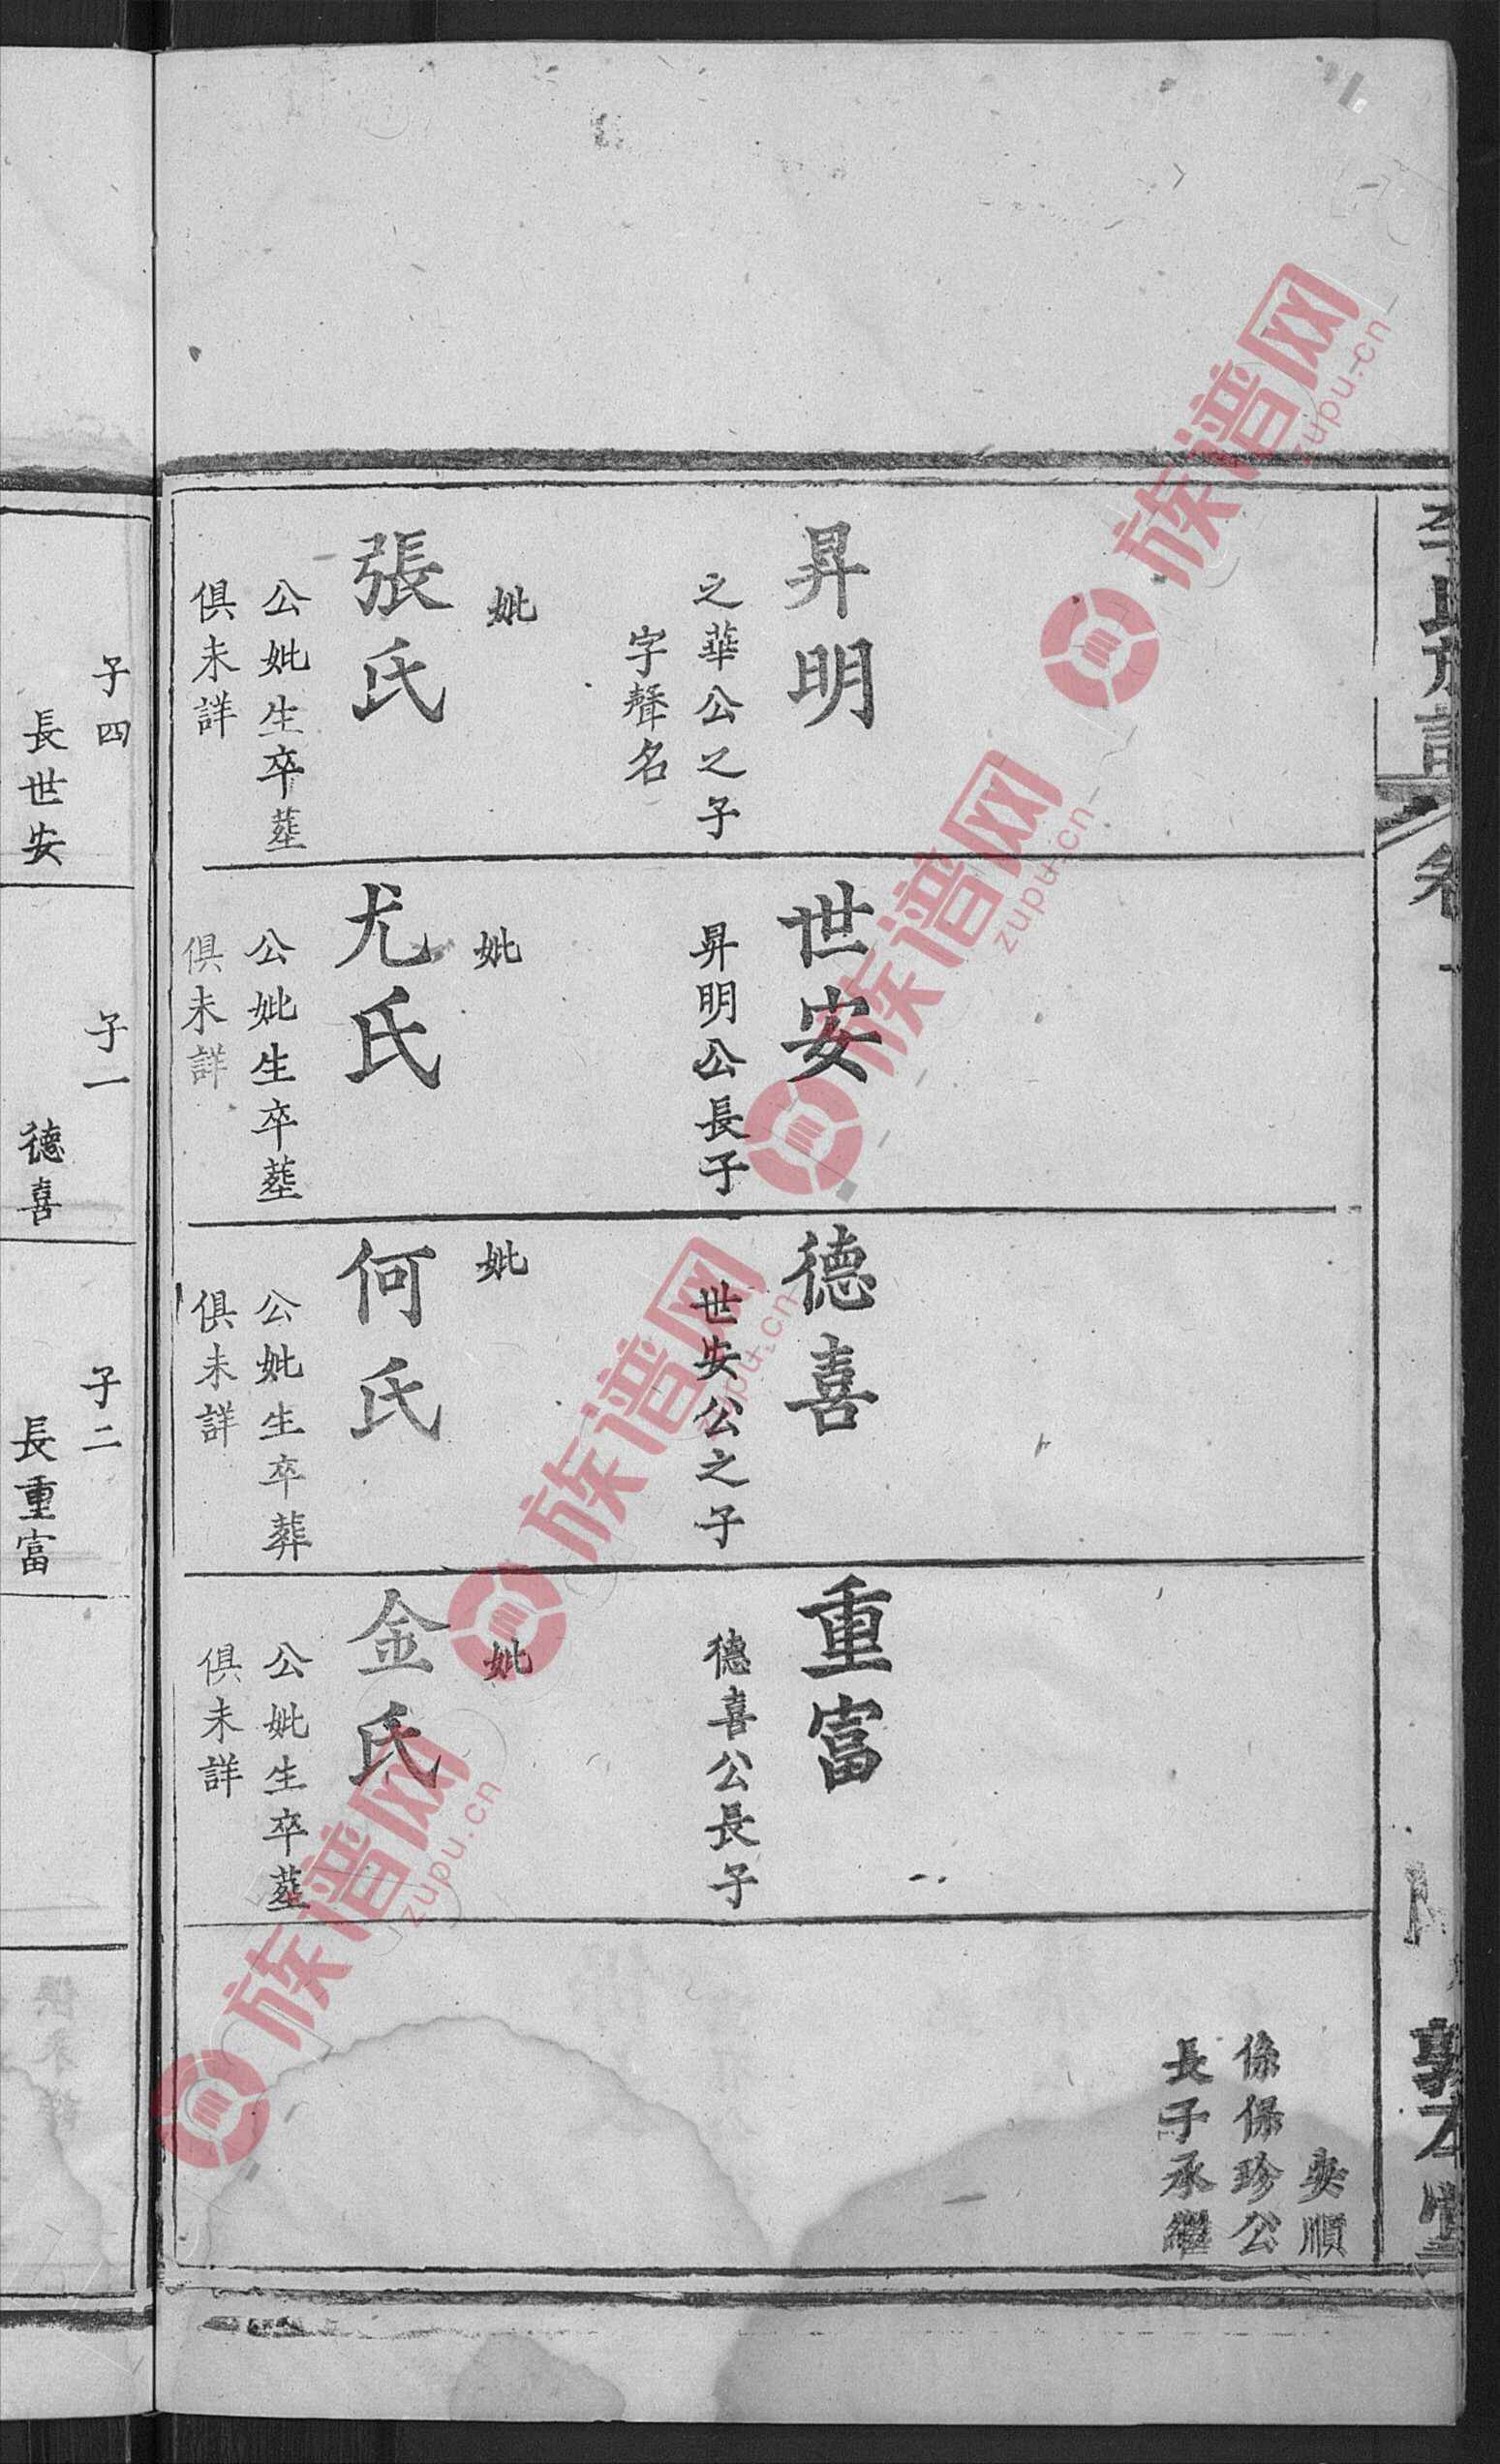 李氏族譜
卷一
敦本堂
昇明
之華公之子
字聲名
妣
張氏
公妣生卒塟
俱未詳
世安
昇明公長子
妣
尤氏
公妣生卒塟
俱未詳
德喜
世安公之子
妣
何氏
公妣生卒葬
俱未詳
重富
德喜公長子
妣
金氏
公妣生卒塟
俱未詳
順
係保珍公
長子承繼
子四
長世安
子一
德喜
子二
長重富
族谱网
zupu.cn
族谱网
zupu.cn
族谱网
zupu.cn
族谱网
zupu.cn